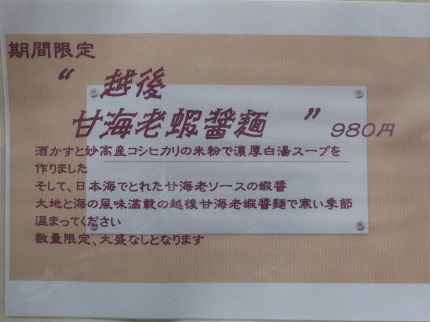 期間限定
“ 越後
甘海老蝦醤麺 ” 980円
酒かすと妙高産コシヒカリの米粉で濃厚白湯スープを
作りました
そして、日本海でとれた甘海老ソースの蝦醬
大地と海の風味満載の越後甘海老蝦醤麺で寒い季節
温まってください
数量限定、大盛なしとなります